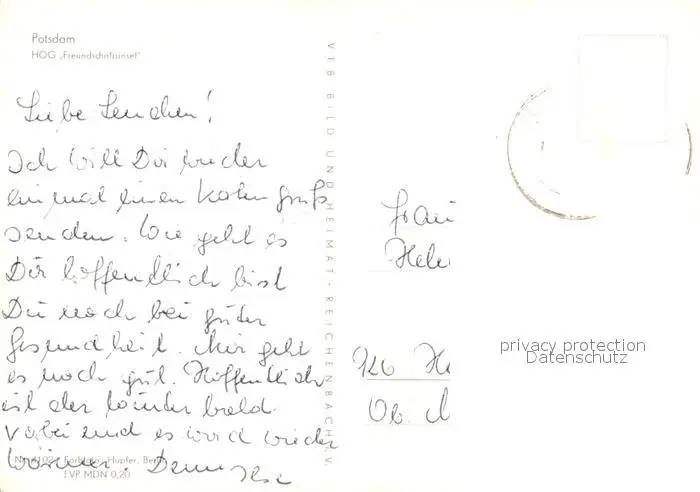 Potsdam
HOG „Freundschaftsinsel"
Liebe Lenchen!
Ich will Dir wieder
einmal einen Kartengruß
senden. Wie geht es
Dir hoffentlich bist
Du noch bei guter
Gesundheit. Mir geht
es noch gut. Hoffentlich
ist der Winter bald
vorbei und es wird wieder
wärmer. Denn
VEB BILD UND HEIMAT · REICHENBACH i. V.
Farbfoto: Hupfer, Berlin
EVP MDN 0,20
Frau
Hele
Ob.
privacy protection
Datenschutz